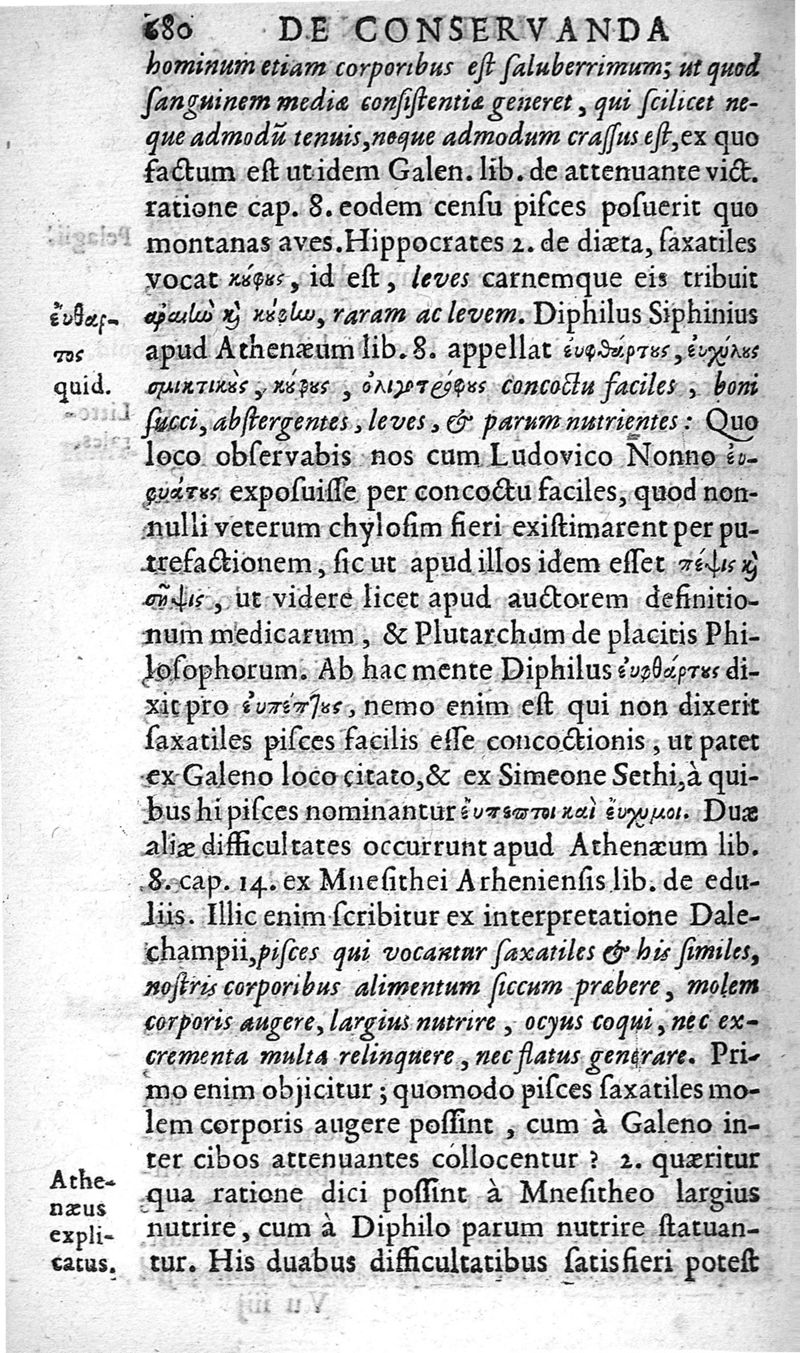 680 DE CONSERVANDA
hominum etiam corporibus eſt ſaluberrimum; ut quod
ſanguinem mediæ conſiſtentiæ generet, qui ſcilicet ne-
que admodũ tenuis, neque admodum craſſus eſt, ex quo
factum eſt ut idem Galen. lib. de attenuante vict.
ratione cap. 8. eodem cenſu piſces poſuerit quo
montanas aves. Hippocrates 2. de diæta, ſaxatiles
vocat κύφȣς, id eſt, leves carnemque eis tribuit
ἀραιὼ ϗ κύφἰω, raram ac levem. Diphilus Siphinius
apud Athenæum lib. 8. appellat ἐυφθάρτȣς, ἐυχύλȣς
σμικτικȣ̀ς, κύφȣς, ὀλιγοτρόφȣς concoctu faciles, boni
ſucci, abſtergentes, leves, & parum nutrientes: Quo
loco obſervabis nos cum Ludovico Nonno ἐυ-
expoſuiſſe per concoctu faciles, quod non-
nulli veterum chyloſim fieri exiſtimarent per pu-
trefactionem, ſic ut apud illos idem eſſet πέψις ϗ
σῆψις, ut videre licet apud auctorem definitio-
num medicarum, & Plutarchum de placitis Phi-
loſophorum. Ab hac mente Diphilus ἐυφθάρτȣς di-
xit pro ἐυπέπ͂ȣς, nemo enim eſt qui non dixerit
ſaxatiles piſces facilis eſſe concoctionis, ut patet
ex Galeno loco citato, & ex Simeone Sethi, à qui-
bus hi piſces nominantur ἐυπεπτοι καὶ ἐυχυμοι. Duæ
aliæ difficultates occurrunt apud Athenæum lib.
8. cap. 14. ex Mneſithei Arhenienſis lib. de edu-
liis. Illic enim ſcribitur ex interpretatione Dale-
champii, piſces qui vocantur ſaxatiles & his ſimiles,
noſtris corporibus alimentum ſiccum præbere, molem
corporis augere, largius nutrire, ocyus coqui, nec ex-
crementa multa relinquere, nec flatus generare. Pri-
mo enim objicitur; quomodo piſces ſaxatiles mo-
lem corporis augere poſſint, cum à Galeno in-
ter cibos attenuantes collocentur? 2. quæritur
qua ratione dici poſſint à Mneſitheo largius
nutrire, cum à Diphilo parum nutrire ſtatuan-
tur. His duabus difficultatibus ſatisfieri poteſt
ἔυθαρ-
τος
quid.
Athe-
næus
expli-
catus.